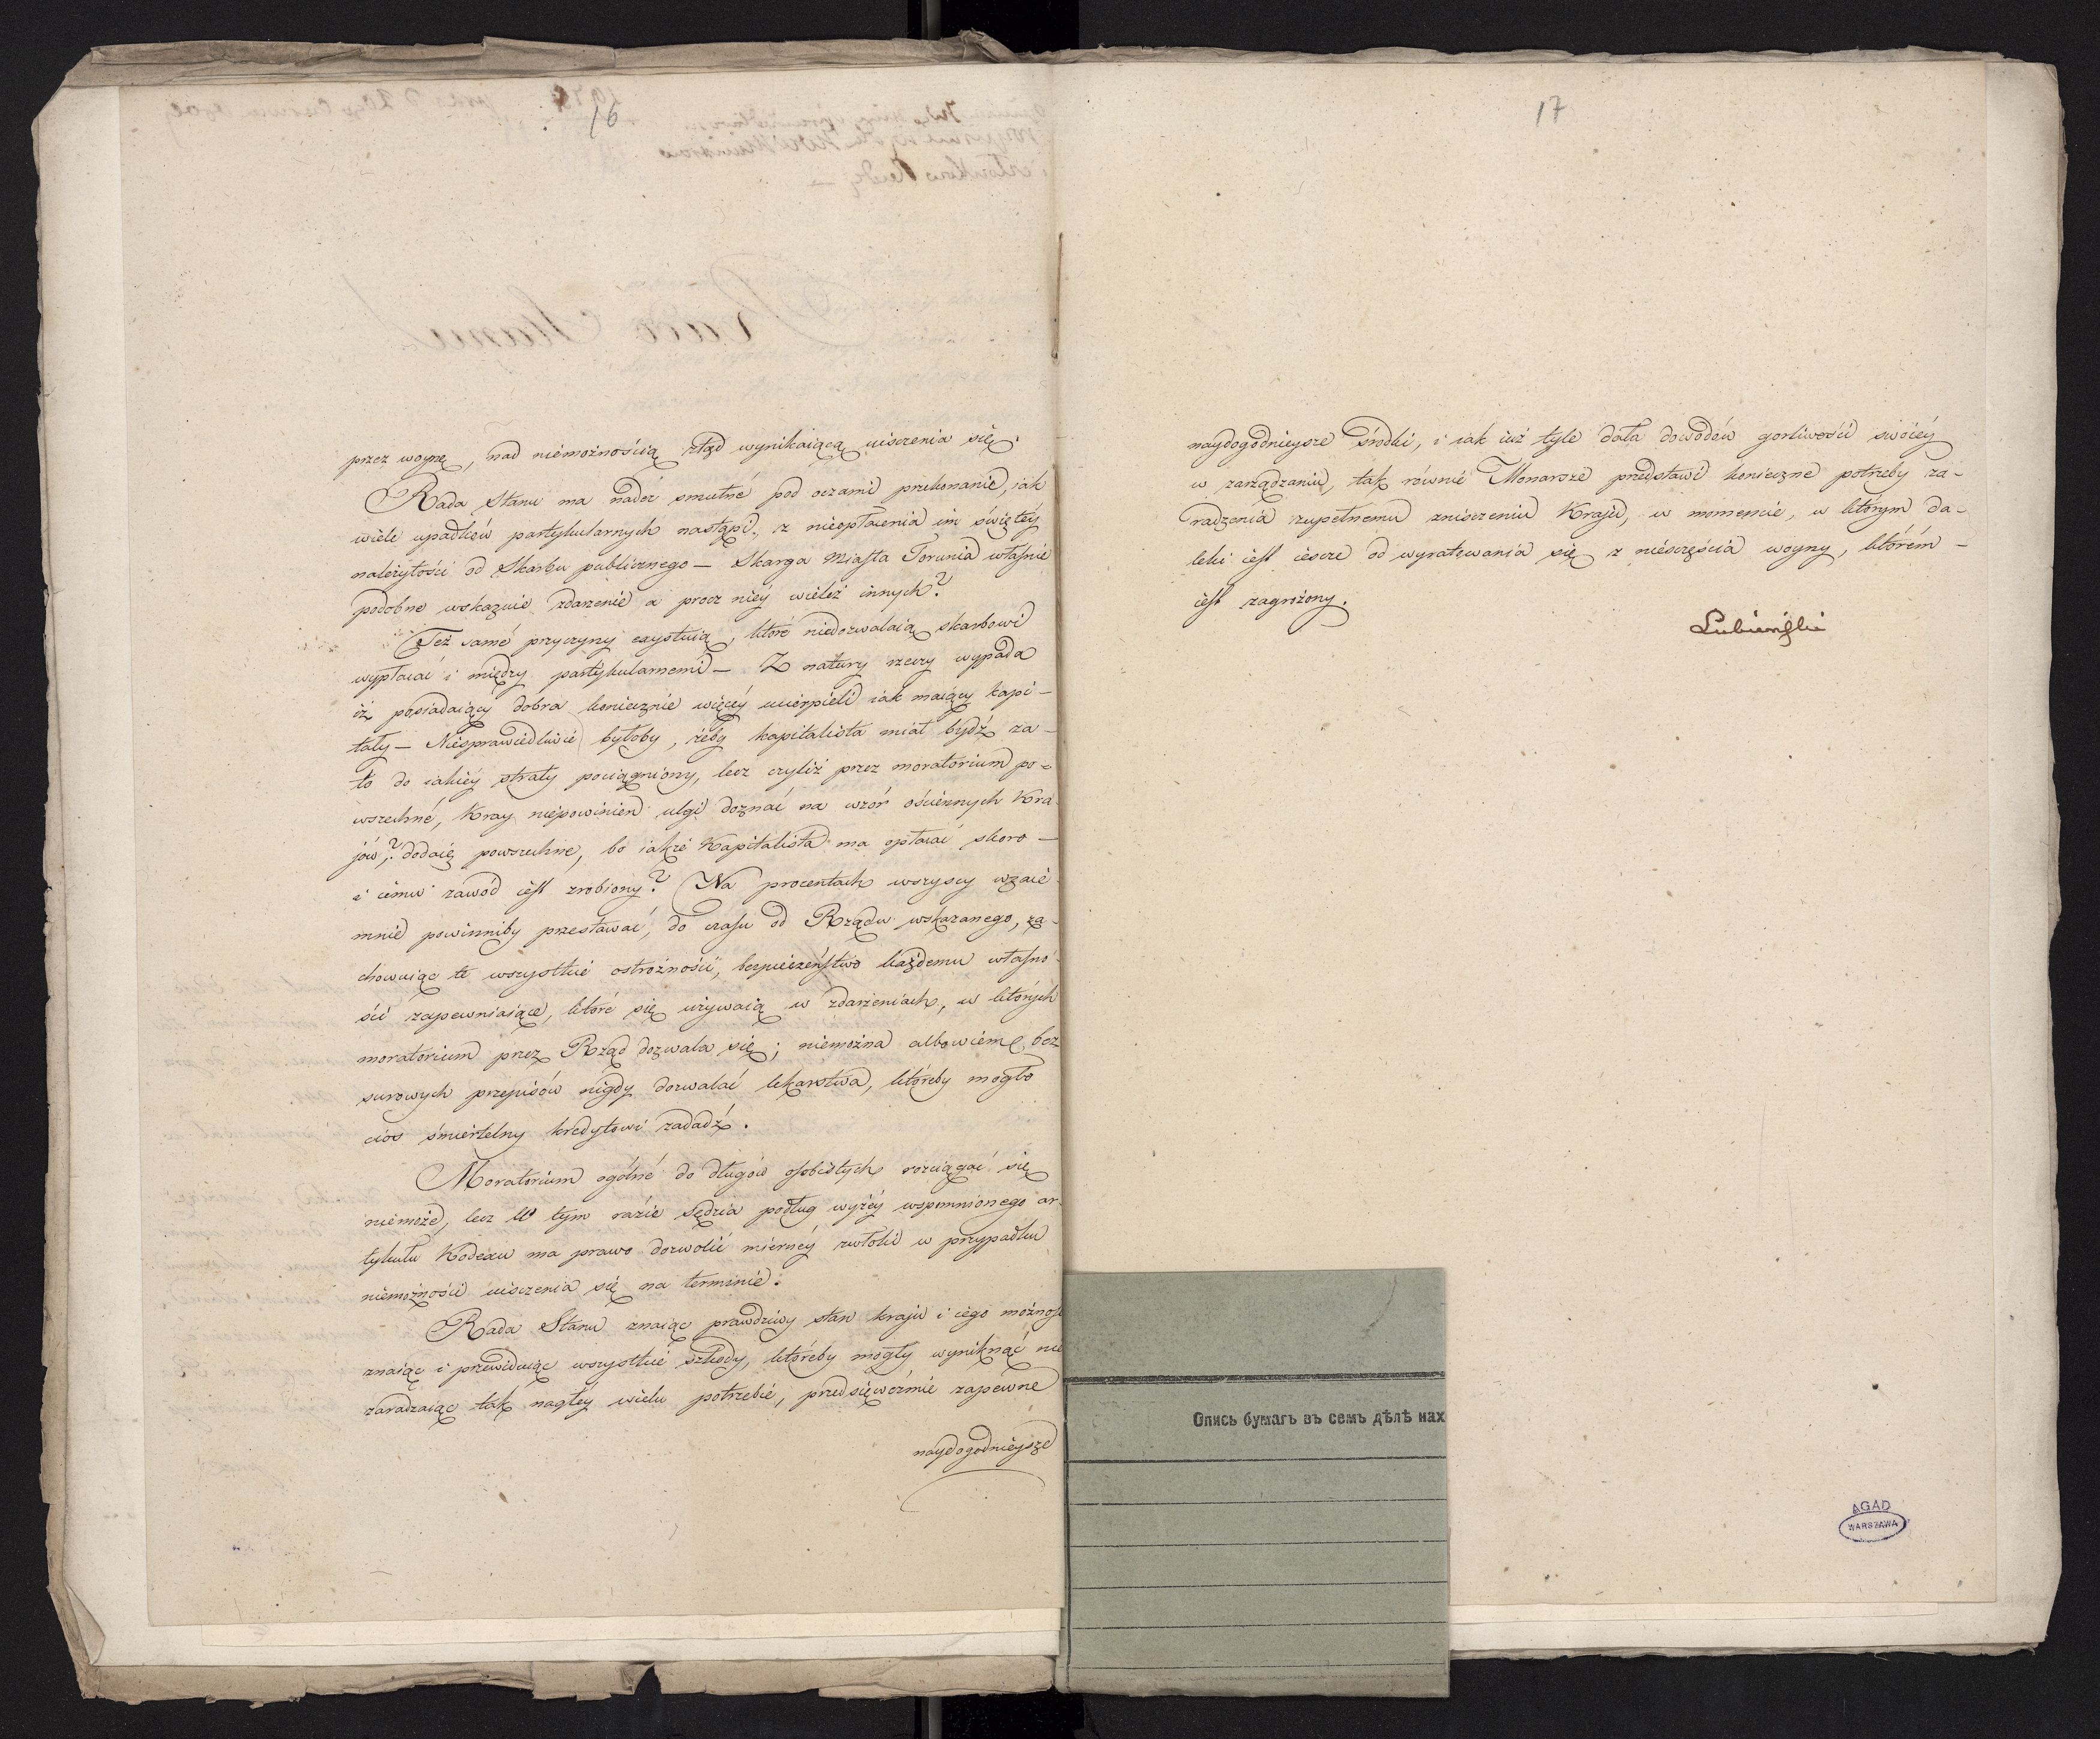 16
przez woynę, nad niemożnością ztąd wynikaiącą uiszczenia się.
Rada Stanu ma nadto smutné pod oczami przekonanie, iak
wiele upadków partykularnych nastąpi, z nieopłacenia im świętéy
należytości od Skarbu publicznego — Skarga Miasta Torunia właśnie
podobne wskazuie zdarzenie a procz niéy wieleż innych?
Też samé przyczyny exystuią, któré niedozwalaią skarbowi
wypłacać i między partykularnemi — Z natury rzeczy wypada
iż posiadaiący dobra koniecznie więcéy ucierpieli iak maiący kapi-
tały — Niesprawiedliwie byłoby, żeby kapitalista miał bydź za-
to do iakiéy straty pociągniony, lecz czyliż przez moratorium po-
wszechné, Kray niepowinien ulgi doznać na wzór ościennych Kra
jów? dodaię powszechne, bo iakże Kapitalista ma opłacać skoro —
i iému zawód iest zrobiony? Na procentach wszyscy wzaié-
mnie powinniby przestawać, do czasu od Rządu wskazanego, za-
chowuiąc te wszystkie ostrożności, bezpieczeństwo każdemu własno-
ści zapewniaiące, któré się używaią w zdarzeniach, w których
moratorium przez Rząd dozwala się; niemożna albowiem bez
surowych przepisów nigdy dozwalać lekarstwa, któreby mogło
cios śmiertelny kredytowi zadadź.
Moratorium ogólné do długów osobistych rozciągać się
niemoże, lecz w tym razie Sędzia podług wyżéy wspomnionego ar-
tykułu Kodexu ma prawo dozwolić miernéy zwłoki w przypadku
niemożności uiszczenia się na terminie.
Rada Stanu znaiąc prawdziwy stan kraju i iego możnoś
znaiąc i przewiduiąc wszystkie szkody, któreby mogły wyniknąć nie
zaradzaiąc tak nagłéy wielu potrzebie, przedsięweźmie zapewne
naydogodnieysze
17
naydogodnieysze środki, i iak iuż tyle dała dowodów gorliwości swoiéy
w zarządzaniu, tak równie Monarsze przedstawi konieczne potrzeby za-
radzenia zupełnemu zniszczeniu Kraju, w momencie, w którym da-
leki iest ieszcze od wyratowania się z nieszczęścia woyny, którém —
iest zagrożony.
Lubieński
Опись бумагъ въ семъ дѣлѣ нах
AGAD
WARSZAWA